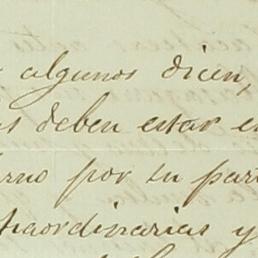 algunos dicen,
s deben estar e
rno por su par
traordinarias y